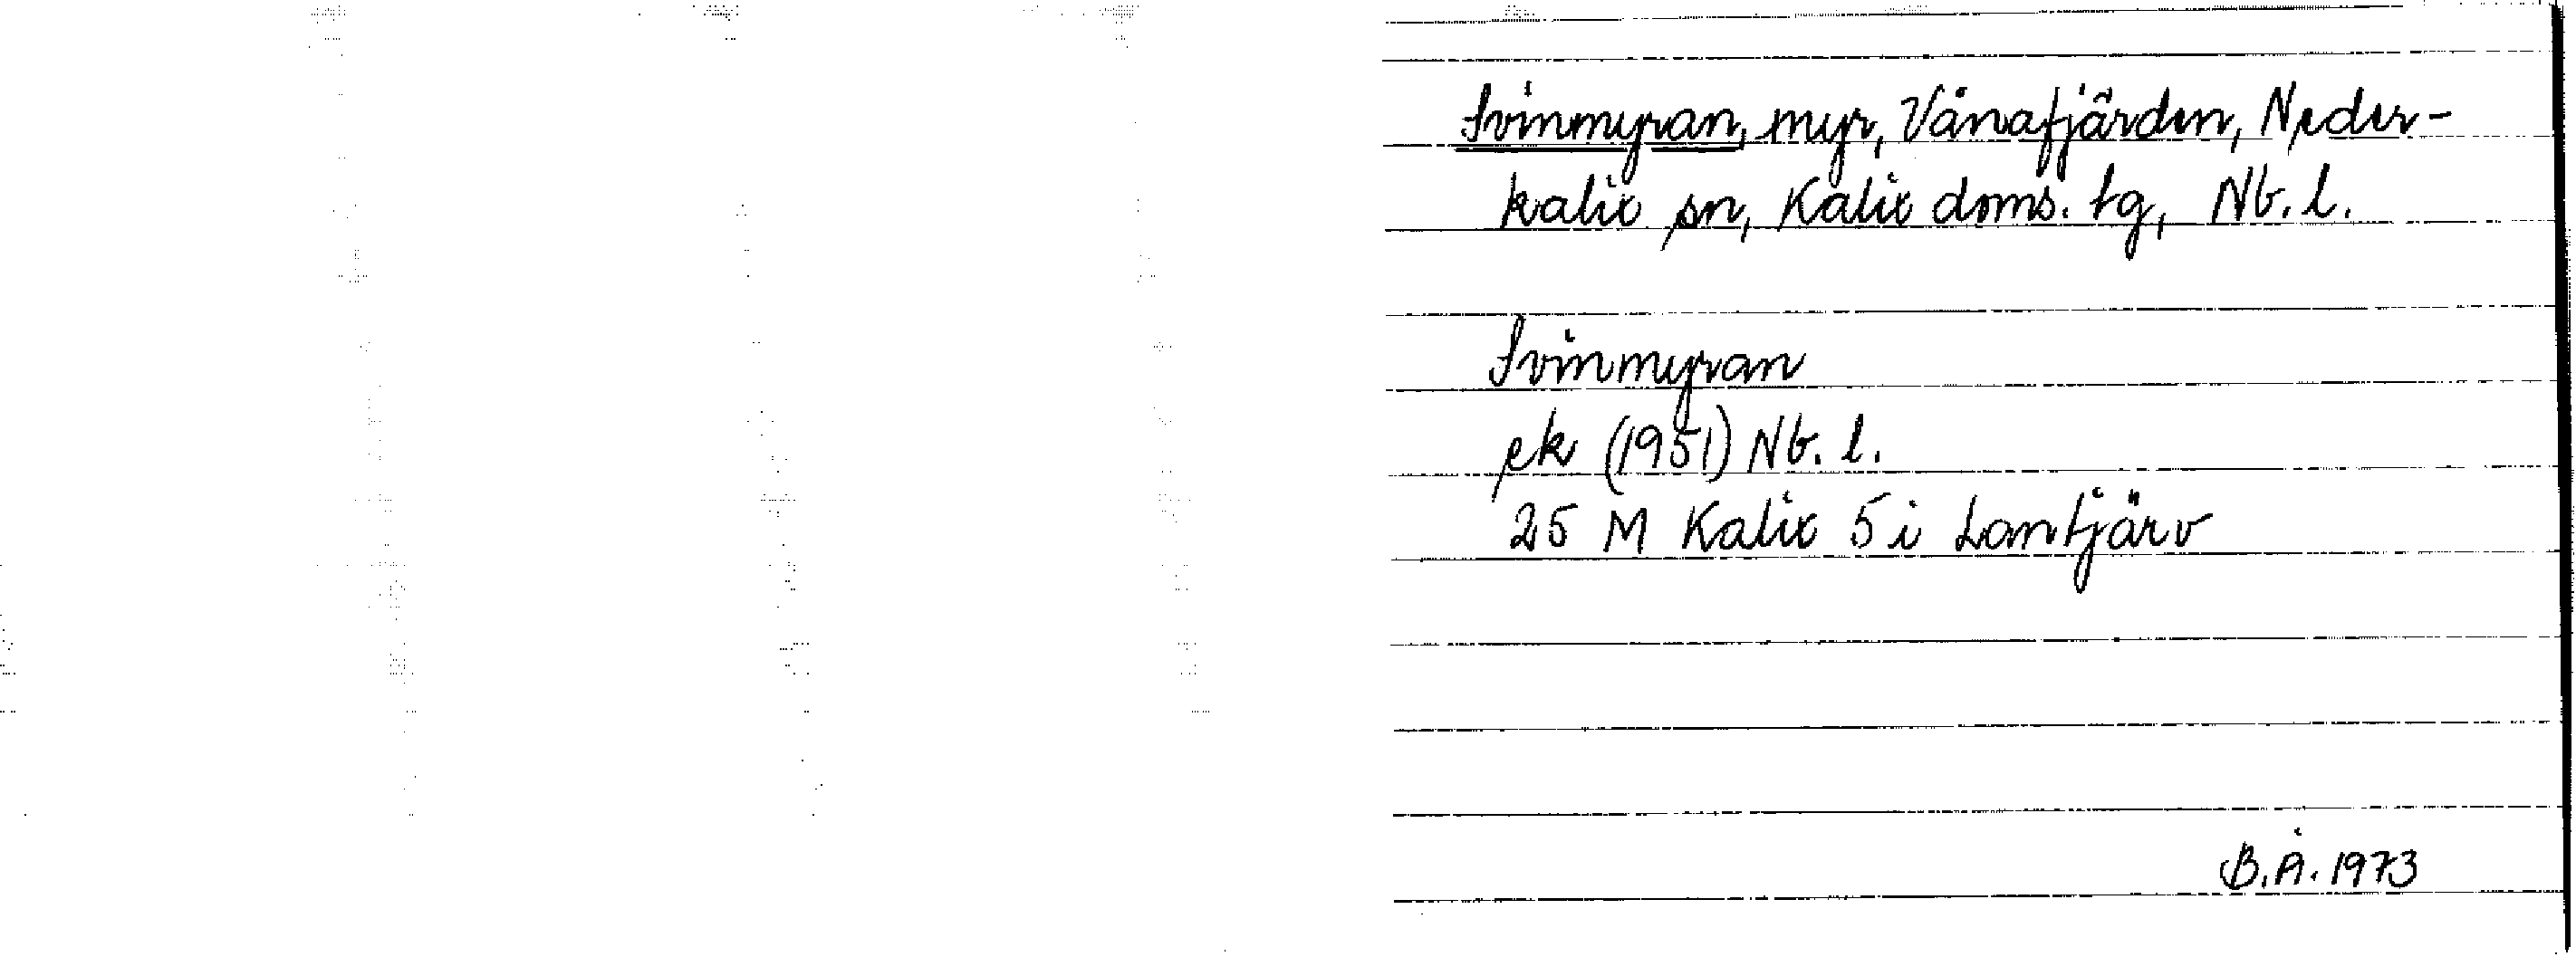 Svinmyran, myr, Vånafjärden, Neder-
kalix sn, Kalix doms. tg, Nb. l.
Svinmyran
ek (1951) Nb. l.
25 M Kalix 5 i Lantjärv
B.Å. 1973